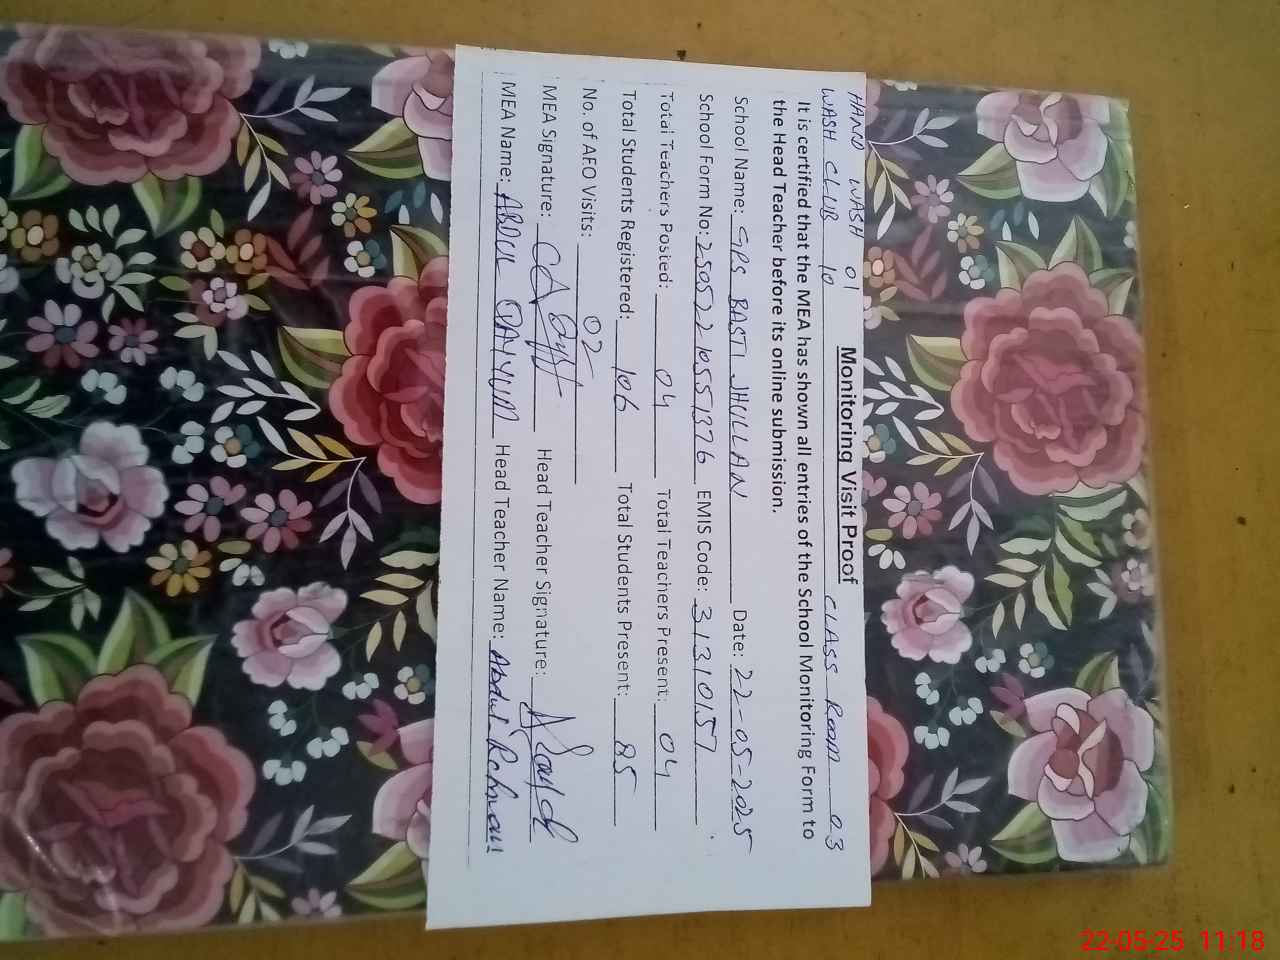 HAND WASH 01
WASH CLUB 10 CLASS ROOM 03
Monitoring Visit Proof
It is certified that the MEA has shown all entries of the School Monitoring Form to
the Head Teacher before its online submission.
School Name: GPS BASTI JHULLAN Date: 22-05-2025
School Form No: 25052210551376 EMIS Code: 31310157
Total Teachers Posted: 04 Total Teachers Present: 04
Total Students Registered: 106 Total Students Present: 85
No. of AEO Visits: 02
MEA Signature: Head Teacher Signature:
MEA Name: ABDUL QAYYUM Head Teacher Name: Abdul Rehman
22-05-25 11:18